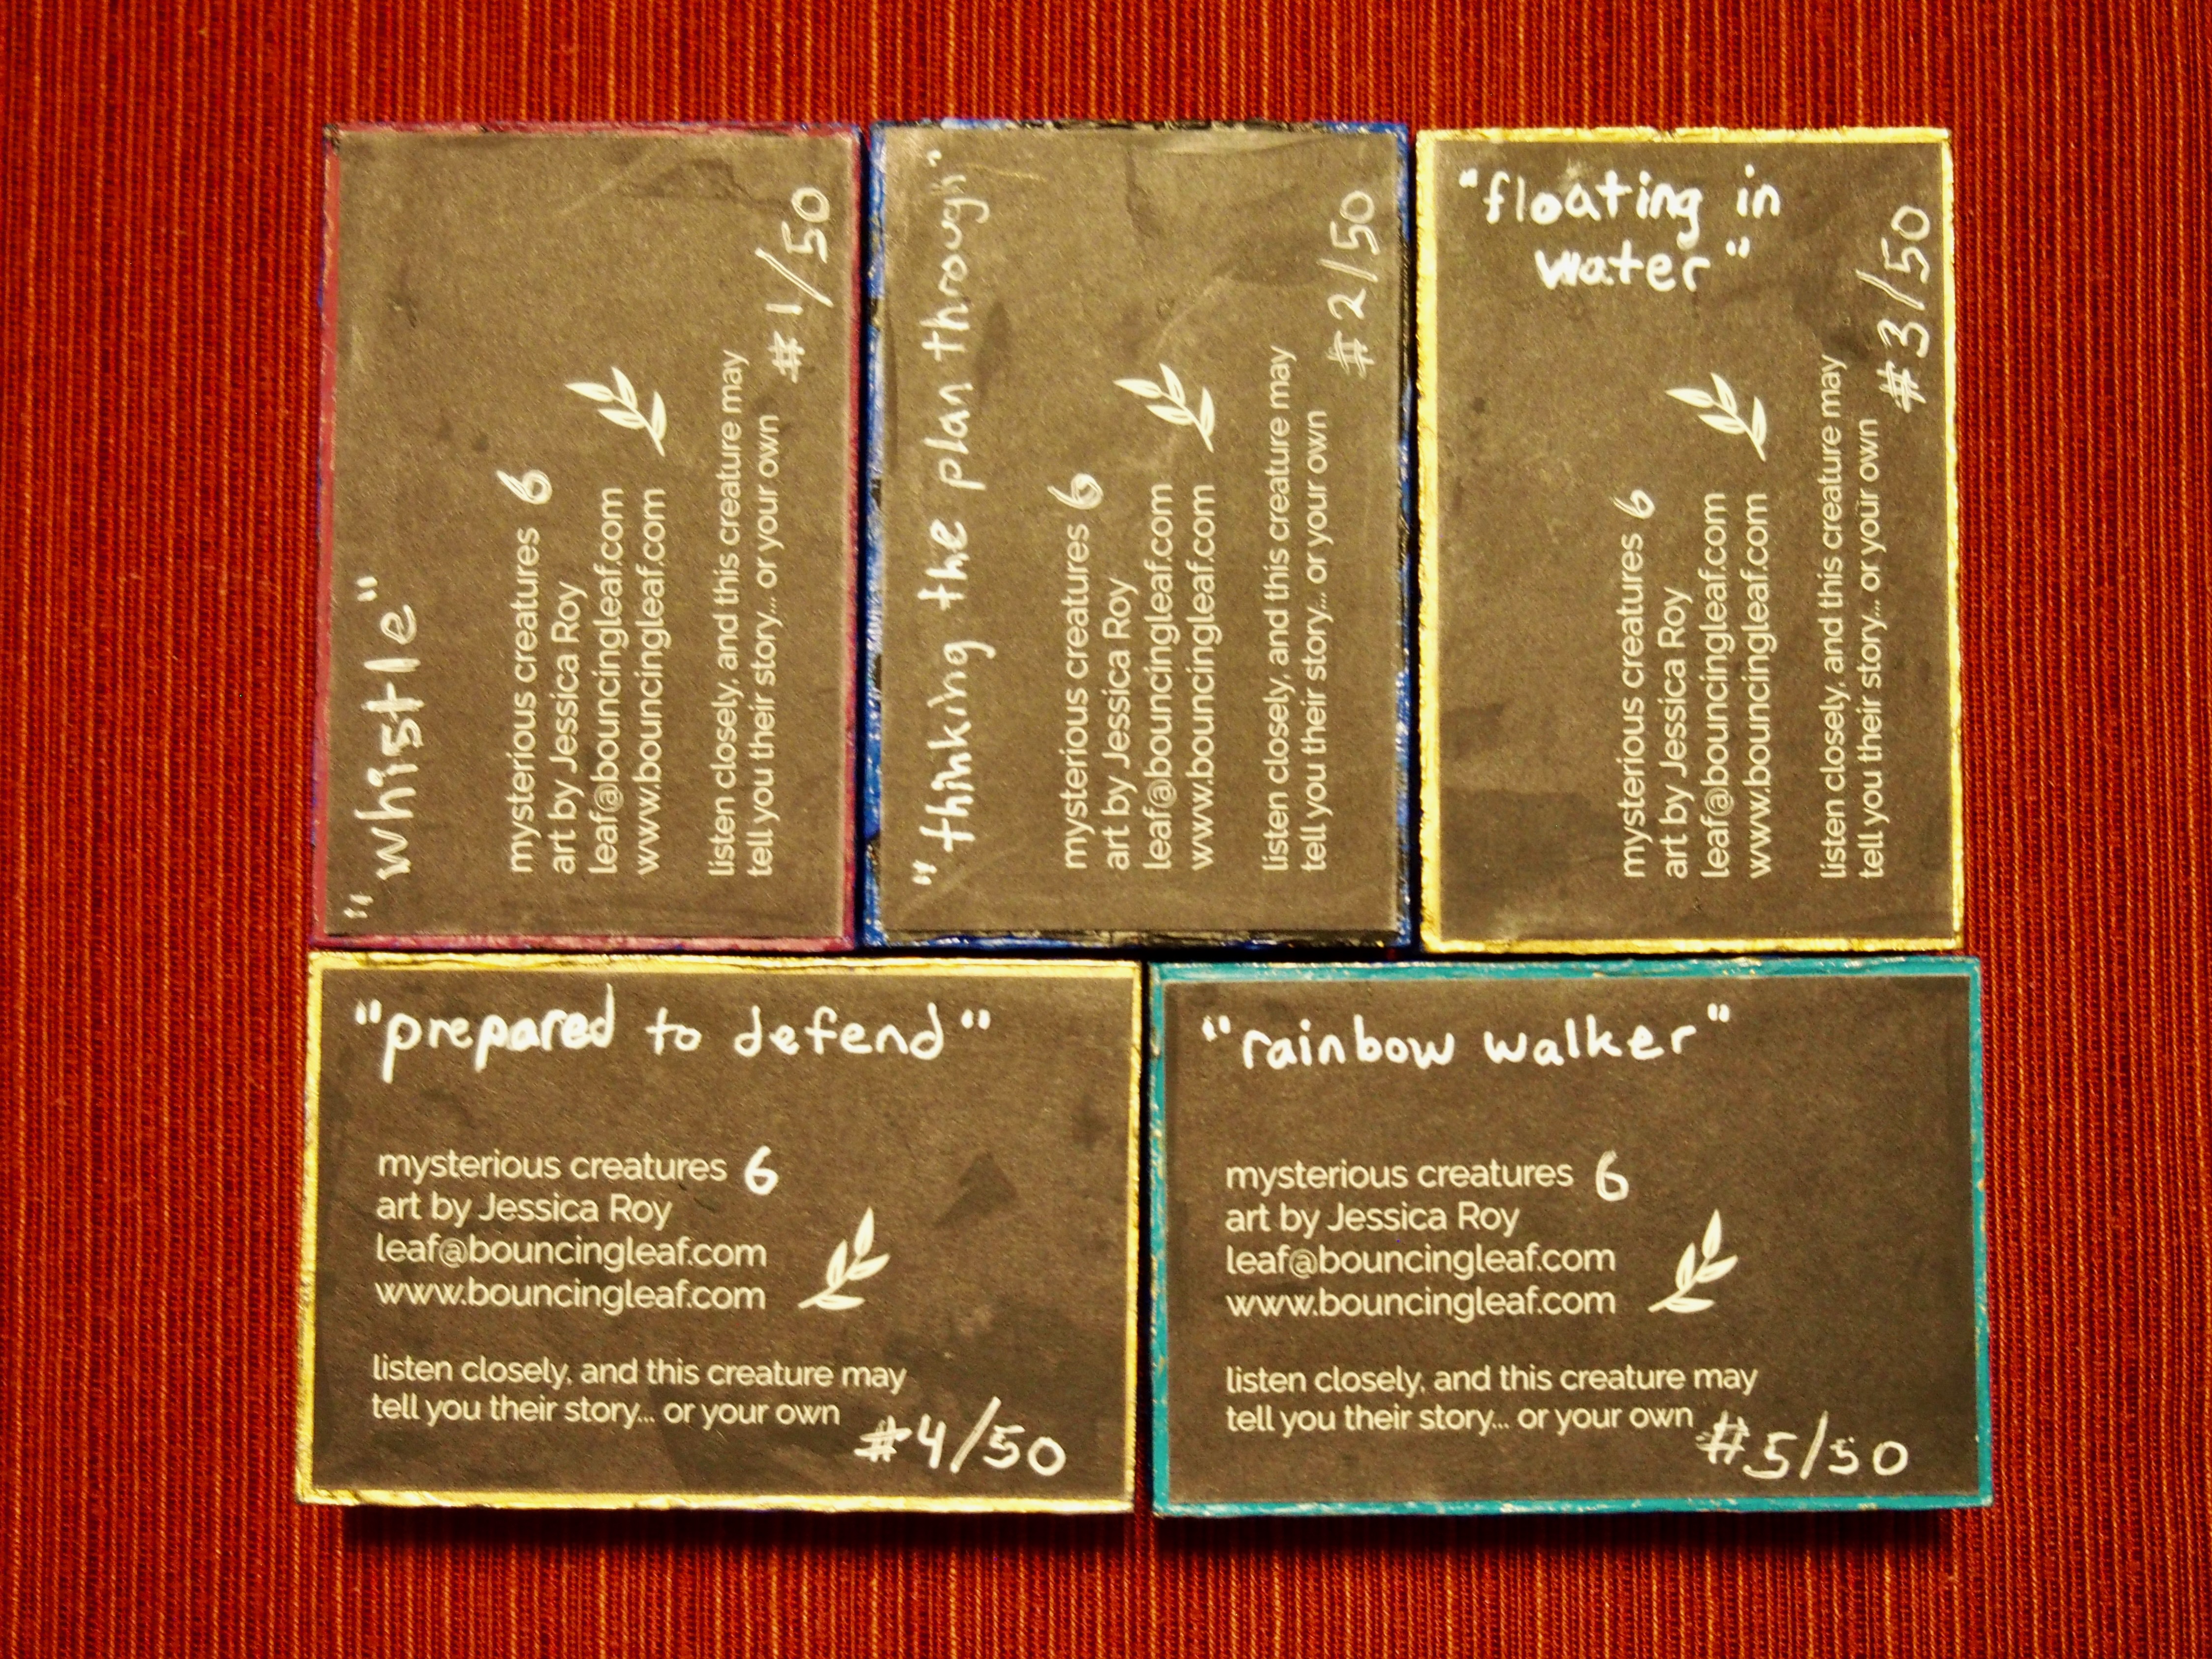 "whistle"
mysterious creatures 6
art by Jessica Roy
leaf@bouncingleaf.com
www.bouncingleaf.com
listen closely, and this creature may
tell you their story... or your own
#1/50
"thinking the plan through"
mysterious creatures 6
art by Jessica Roy
leaf@bouncingleaf.com
www.bouncingleaf.com
listen closely, and this creature may
tell you their story... or your own
#2/50
"floating in
water"
mysterious creatures 6
art by Jessica Roy
leaf@bouncingleaf.com
www.bouncingleaf.com
listen closely, and this creature may
tell you their story... or your own
#3/50
"prepared to defend"
mysterious creatures 6
art by Jessica Roy
leaf@bouncingleaf.com
www.bouncingleaf.com
listen closely, and this creature may
tell you their story... or your own
#4/50
"rainbow walker"
mysterious creatures 6
art by Jessica Roy
leaf@bouncingleaf.com
www.bouncingleaf.com
listen closely, and this creature may
tell you their story... or your own
#5/50